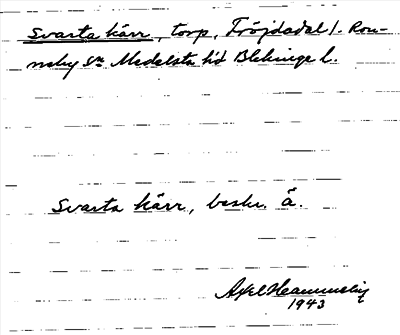 Svarta kärr, torp, Fröjdadal 1. Ron-
neby sn Medelsta hd Blekinge l.
Svarta kärr, beskr. ä.
Axel Hammarling
1943